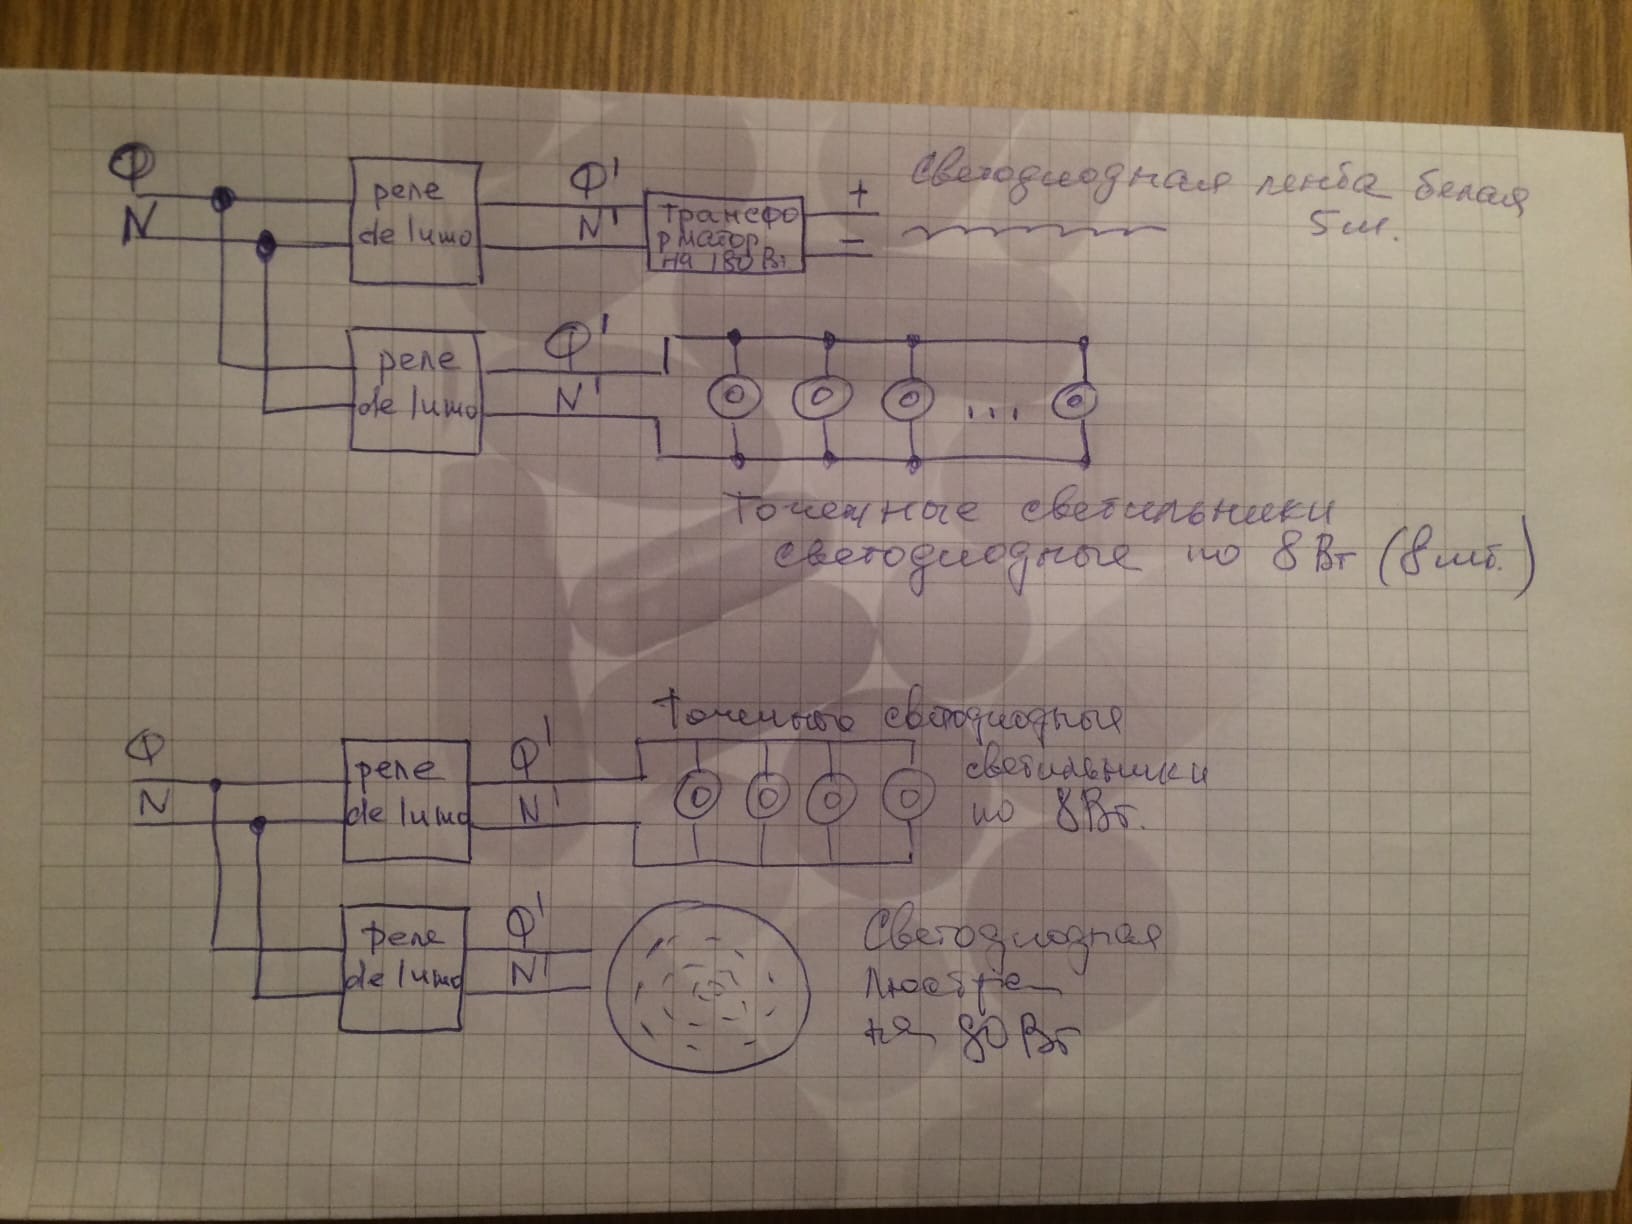 Ф
N
реле
delumo
Ф'
N'
Трансфо
рматор
на 180 Вт
+
−
Светодиодная лента белая
5м.
реле
delumo
Ф'
N'
...
Точечные светильники
светодиодные по 8Вт (8шт.)
Ф
N
реле
delumo
Ф'
N'
Точечные светодиодные
светильники
по 8Вт.
реле
delumo
Ф'
N'
Светодиодная
люстра
на 80Вт